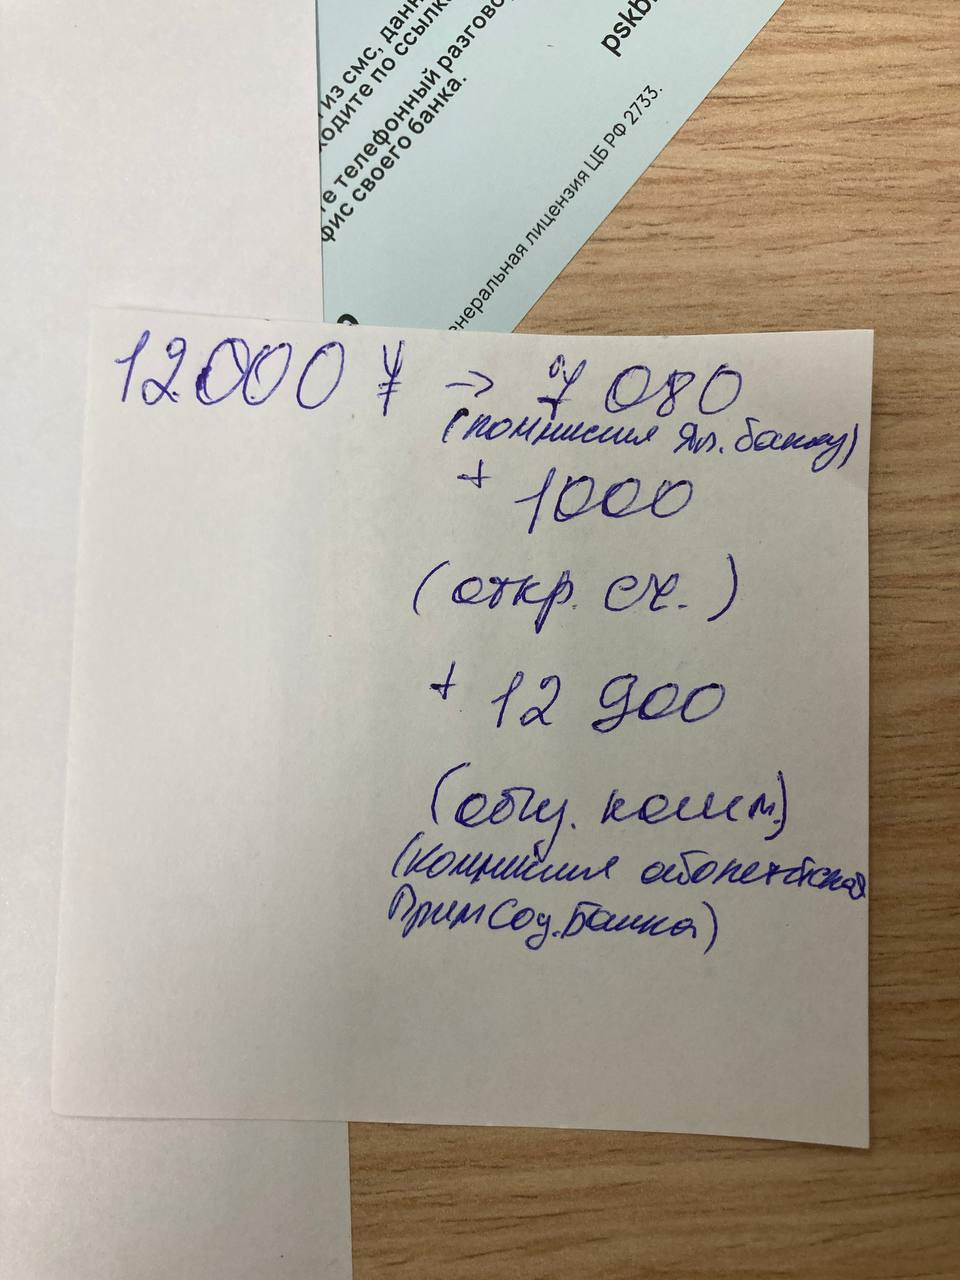 из смс, данн
ходите по ссылк
те телефонный разгово
фис своего банка.
pskb
енеральная лицензия ЦБ РФ 2733.
12000 ¥ → 7 080
(комиссия Яп. банку)
+ 1000
(откр. сч.)
+ 12 900
(общ. комм.)
(комиссия
Прим Соц. Банка)